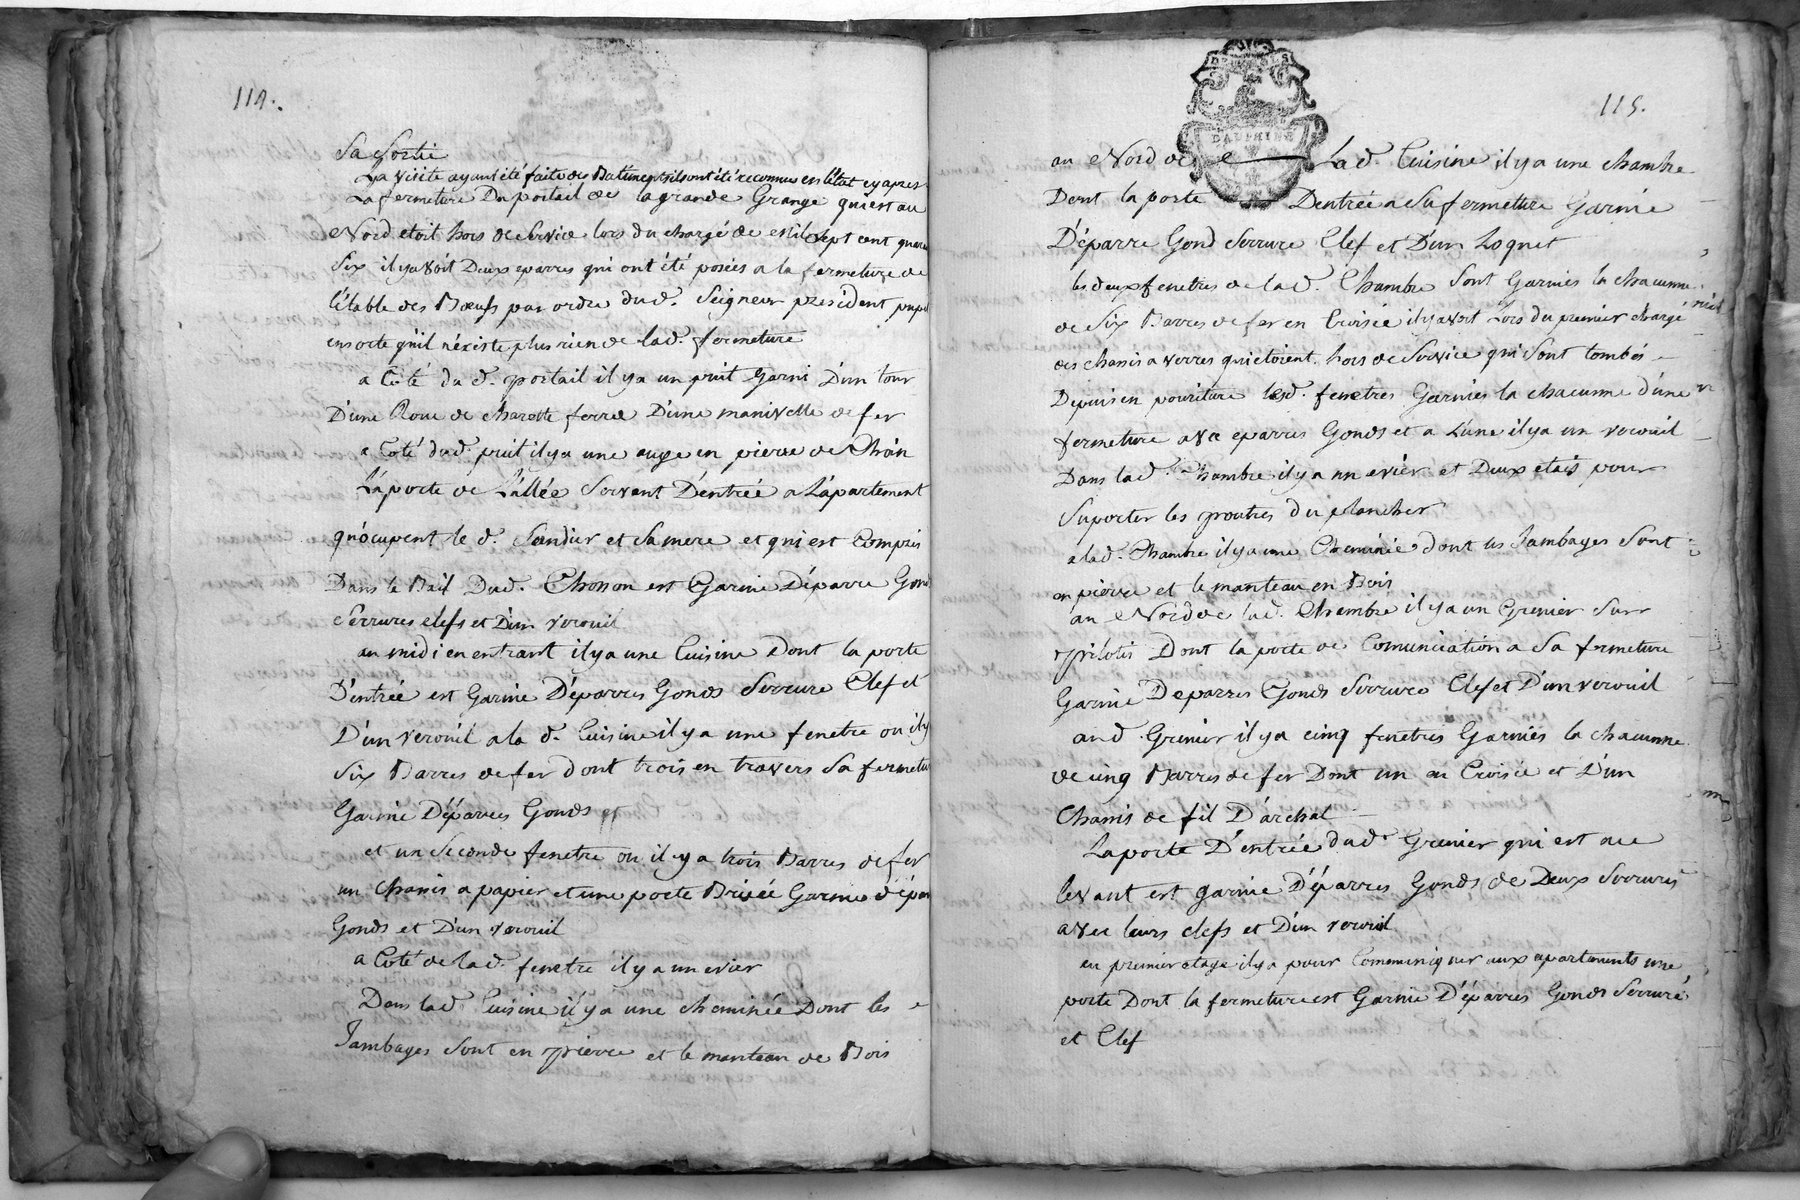 114.
Sa Sortie
La visite ayant été faite des Batiments ils ont été reconnus en l'état cy apres
La fermeture Du portail de la grande Grange qui est au
Nord etoit hors de Service lors du chargé de mil sept cent quara
Six il y avoit Deux eparres qui ont été posées a la fermeture de
l'étable des Bœufs par ordre dud. Seigneur president
ensorte qu'il n'existe plus rien de lad. fermeture
a Coté dud. portail il y a un puit garni D'un tour
D'une Roue de charette ferrée D'une manivelle de fer
a Coté dud. puit il y a une auge en pierre de
La porte de L'allée Servant D'entrée a L'apartement
qu'ocupent le d. Sandier et Sa mere et qui est Compris
Dans le Bail Dud. Chosson est Garnie D'éparre Gon
Serrures clefs et D'un verouil
au midi en entrant il y a une Cuisine Dont la porte
D'entrée est Garnie D'éparres Gonds Serrure Clef et
D'un verouil a la d. Cuisine il y a une fenetre ou il y
Six Barres de fer dont trois en travers Sa fermetu
Garnie D'éparres Gonds et
et un Seconde fenetre ou il y a trois Barres de fer
un chassis a papier et une porte Brisée Garnie d'épar
Gonds et D'un verouil
a Coté de lad. fenetre il y a un evier
Dans lad. Cuisine il y a une cheminée Dont les
Jambages Sont en pierre et le manteau de Bois
115.
DAUPHINE
au Nord de La d. Cuisine il y a une chambre
Dont la porte Dentrée a Sa fermeture Garnie
D'éparre Gond Serrure Clef et D'un Loquet
les deux fenetres de lad. Chambre Sont Garnies la chacunne
de Six Barres de fer en Croisée il y avoit Lors du premier chargé
des chassis a verres qui etoient hors de Service qui Sont tombés
Depuis en pouriture lesd. fenetres Garnies la chacunne d'une
fermeture avec eparres Gonds et a L'une il y a un verouil
Dans lad. Chambre il y a un evier et Deux etais pour
Suporter les poutres du plancher
a lad. Chambre il y a une Cheminée dont les Jambages Sont
en pierre et le manteau en Bois
au Nord de lad. Chambre il y a un Grenier Sur
pilotis Dont la porte de Comunication a Sa fermeture
Garnie Deparres Gonds Serrure Clef et D'un verouil
aud. Grenier il y a cinq fenetres Garnies la chacunne
de cinq Barres de fer Dont un en Croisée et D'un
Chassis de fil D'archal
La porte D'entrée dud. Grenier qui est au
levant est garnie D'éparres Gonds de Deux Serrures
avec leurs clefs et D'un verouil
au premier etage il y a pour Communiquer aux apartements une
porte Dont la fermeture est Garnie D'éparres Gonds Serrure
et Clef